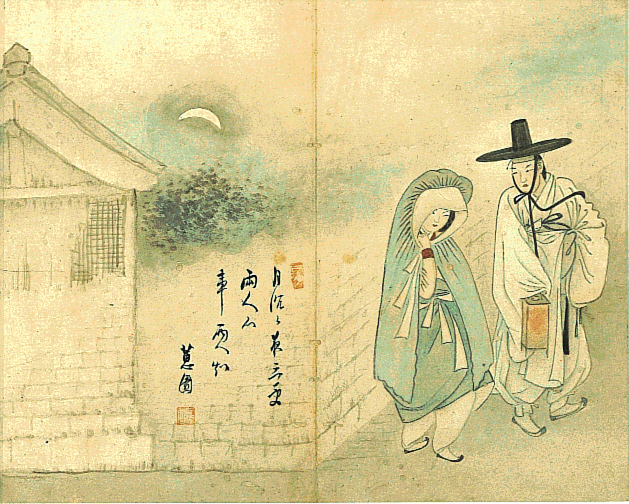 月沉〻夜三更
兩人心
事兩人知
蕙園